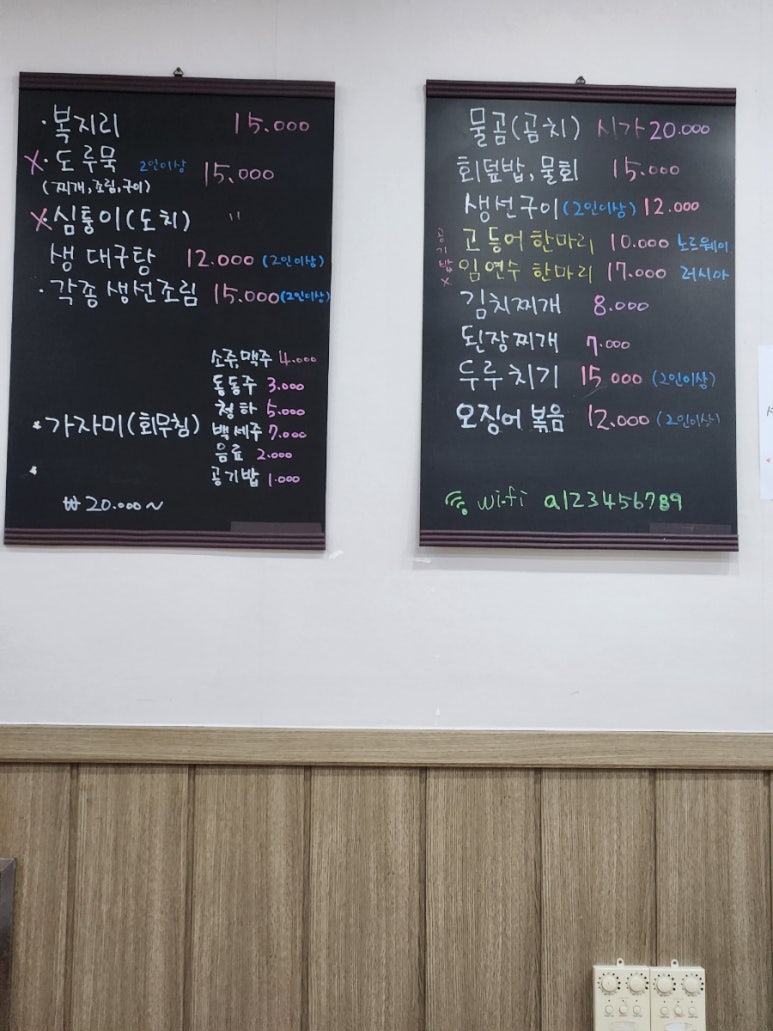 ·복지리 15.000
X·도루묵 2인이상 15.000
(찌개,조림,구이)
X·심퉁이(도치) "
생 대구탕 12.000 (2인이상)
·각종 생선조림 15.000(2인이상)
소주,맥주 4.000
동동주 3.000
청하 5.000
·가자미(회무침)
백세주 7.000
음료 2.000
공기밥 1.000
₩ 20.000~
물곰(곰치) 시가 20.000
회덮밥,물회 15.000
생선구이(2인이상) 12.000
공기밥x
고등어 한마리 10.000 노르웨이
임연수 한마리 17.000 러시아
김치찌개 8.000
된장찌개 7.000
두루치기 15.000 (2인이상)
오징어 볶음 12.000 (2인이상)
wi-fi a123456789